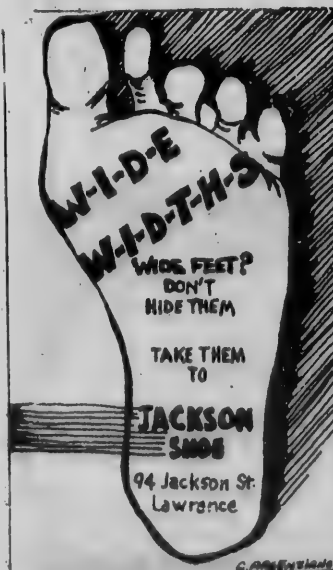 W-I-D-E
W-I-D-T-H-S
WIDE FEET?
DON'T
HIDE THEM
TAKE THEM
TO
JACKSON
SHOE
94 Jackson St.
Lawrance